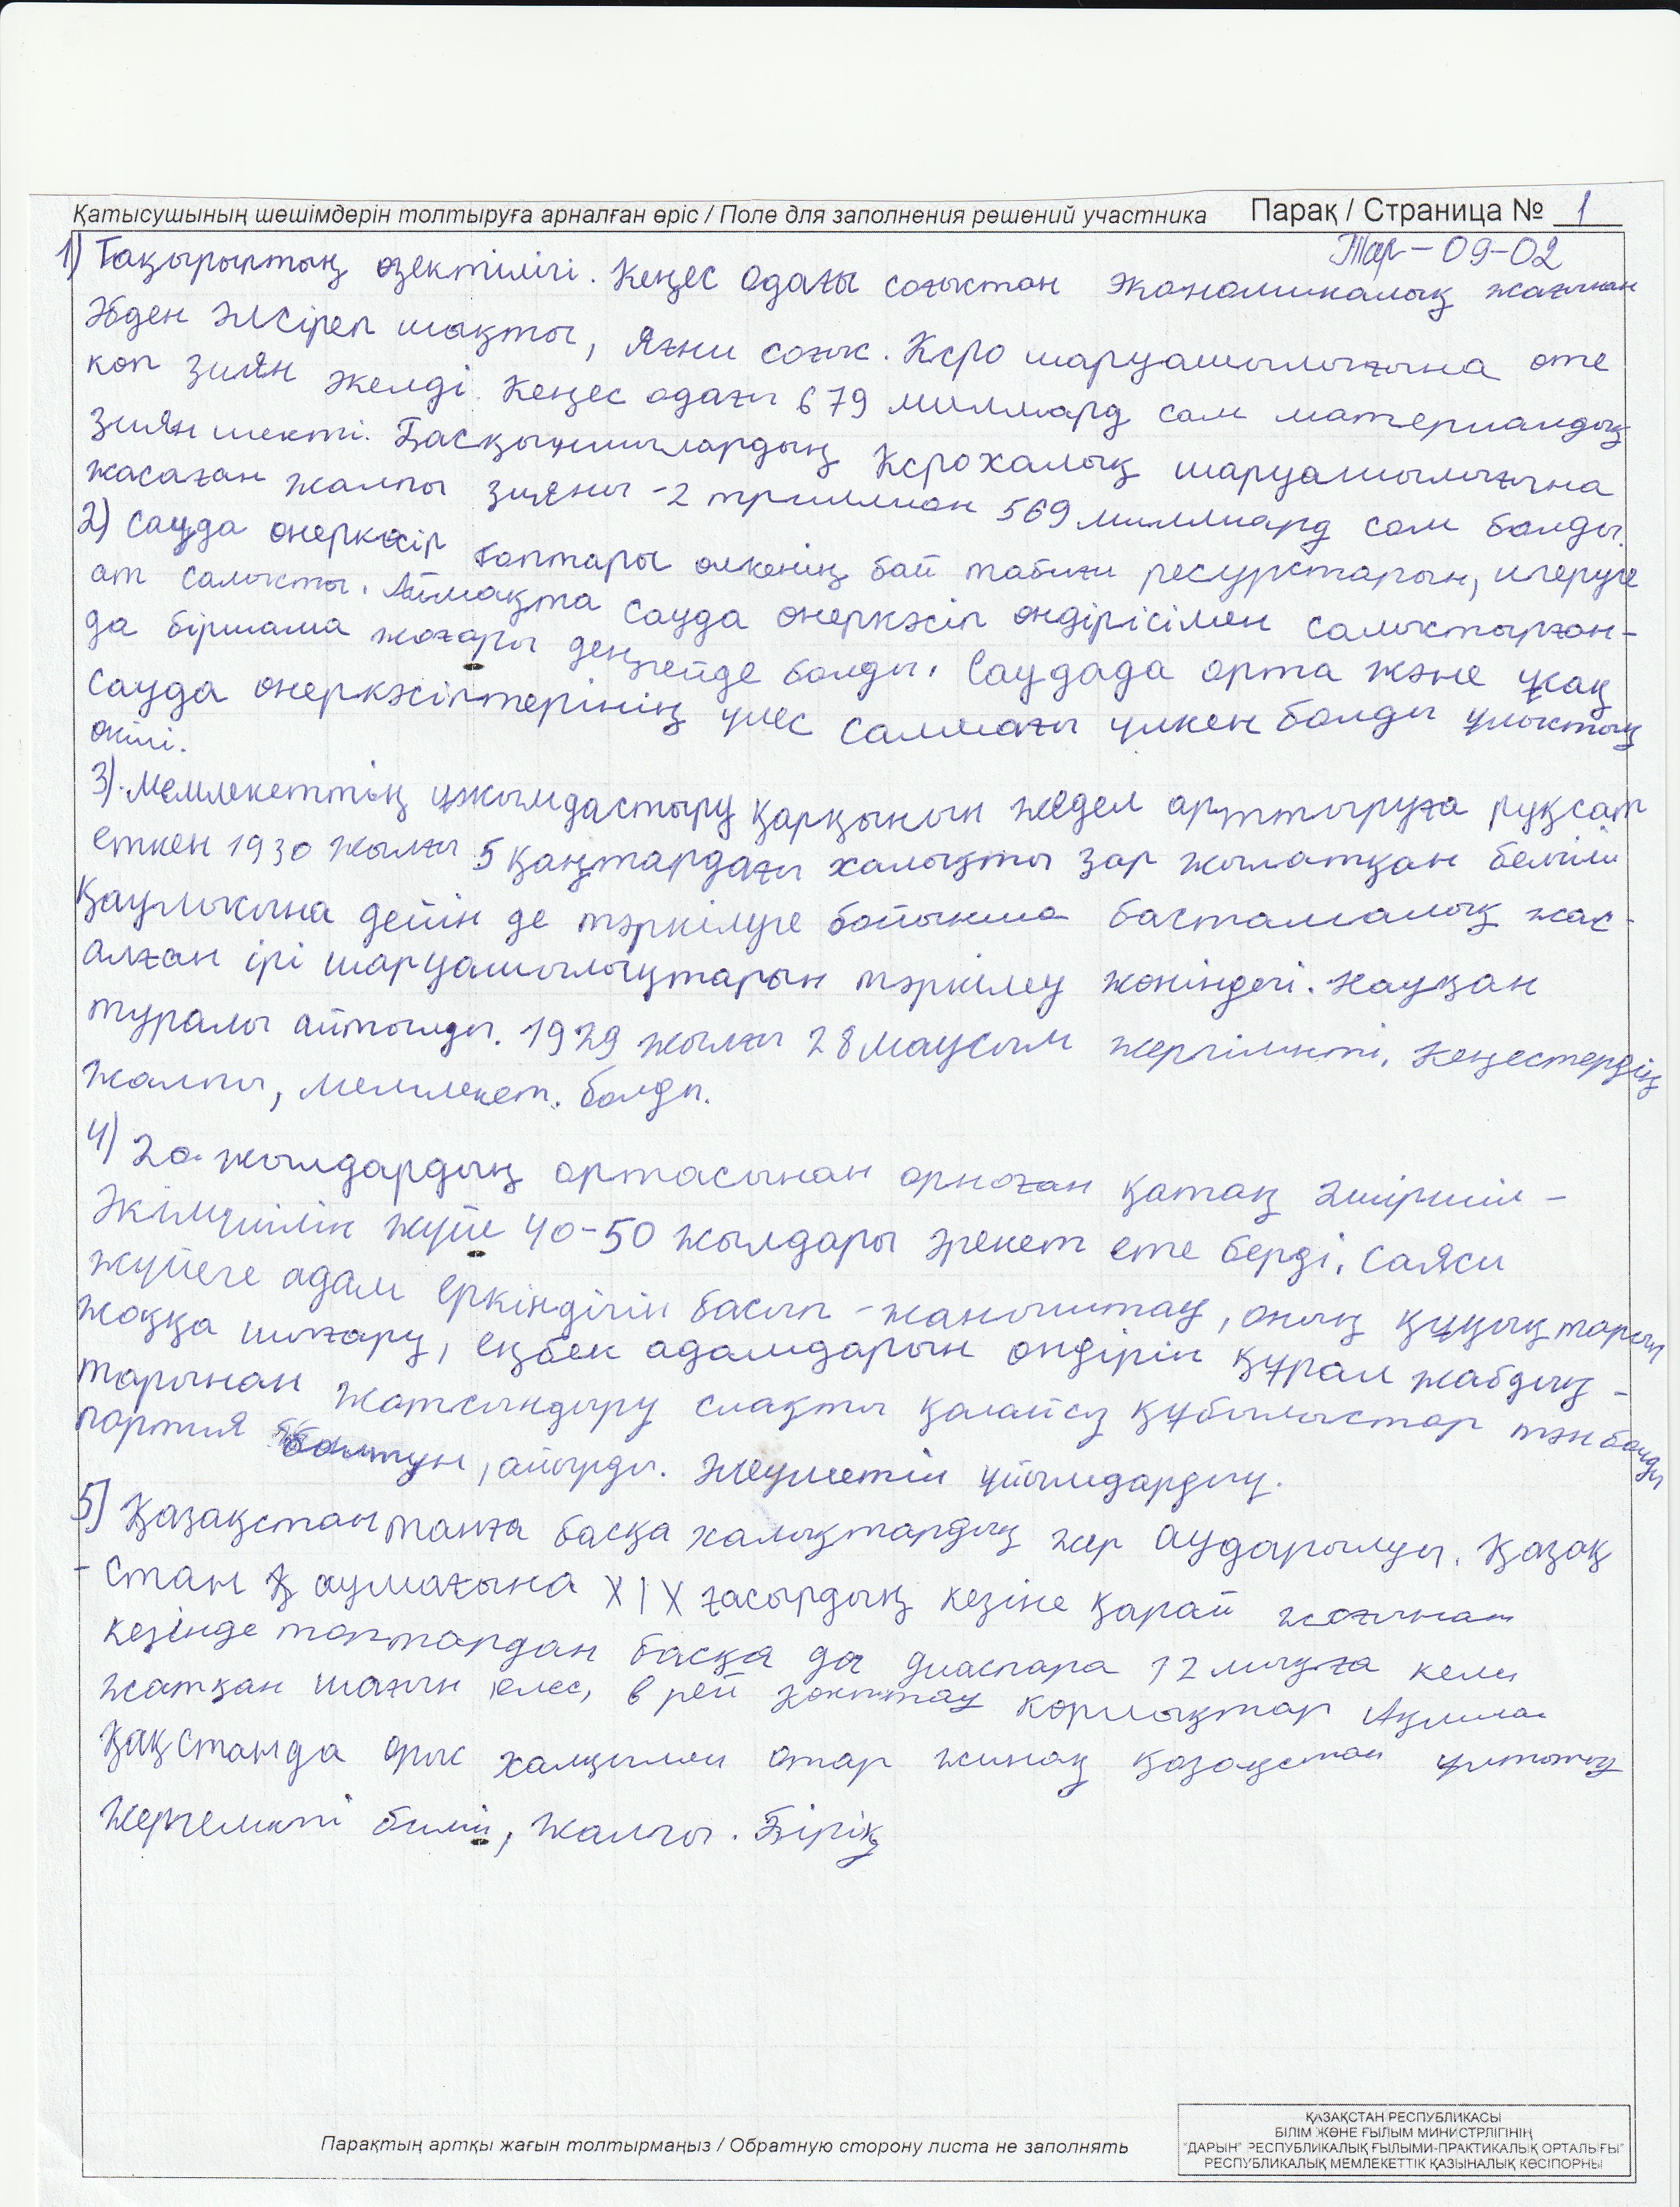 Қатысушының шешімдерін толтыруға арналған өріс / Поле для заполнения решений участника Парақ / Страница № 1
Тар-09-02
1) Тақырыптың өзектілігі. Кеңес одағы соғыстан экономикалық жағынан
Әбден әлсіреп шықты, яғни соғыс. Ксро шаруашылығына оте
коп зиян әкелді. Кеңес одағы 679 миллиард сом материалдық
зиян шекті. Басқыншылардың Ксро халық шаруашылығына
жасаған жалпы зияны -2 триллион 569 миллиард сом болды.
2) Сауда онеркәсіп топтары олкенің бай табиғи ресурстарын, игеруге
ат салысты. Аймақта сауда онеркәсіп ондірісімен салыстырған-
да біршама жоғары деңгейде болды. Саудада орта және ұсақ
сауда онеркәсіптерінің үлес салмағы үлкен болды ұлыстың
окілі.
3). Мемлекеттің ұжымдастыру қарқынын жедел арттыруға рұқсат
еткен 1930 жылғы 5 қаңтардағы халықты зар жылатқан белгілі
Қаулысына дейін де тәркілуге бойынша бастамалық жас-
алған ірі шаруашылықтарын тәркілеу жөніндегі. науқан
туралы айтылды. 1929 жылғы 28 маусым жергілікті. Кеңестердің
жалпы, мемлекет. болды.
4) 20-жылдардың ортасынан орнаған қатаң әміршіл-
Әкімшілік жүйе 40-50 жылдары әрекет ете берді. Саяси
жүйеге адам еркіндігін басып-жаныштау, оның құқықтарын
жоққа шығару, еңбек адамдарын ондіріп құрал жабдық-
тарынан жатсындыру сиақты қолайсыз құбылыстар тән болды
партия , айырды. Әлеуметтік ұйымдардың.
5) Қазақстан танға басқа халықтардың жер аударылуы. Қазақ
-стан аумағына XIX ғасырдың кезіне қарай
кезінде топтардан басқа да диаспара 12 мыңға кели
жатқан шағын
Қақстанда орыс халқымен отар жинақ қазақстан ұлттың
Жергелікті билік, Жалғы. Бірік
Парақтың артқы жағын толтырмаңыз / Обратную сторону листа не заполнять
ҚАЗАҚСТАН РЕСПУБЛИКАСЫ
БІЛІМ ЖӘНЕ ҒЫЛЫМ МИНИСТРЛІГІНІҢ
"ДАРЫН" РЕСПУБЛИКАЛЫҚ ҒЫЛЫМИ-ПРАКТИКАЛЫҚ ОРТАЛЫҒЫ"
РЕСПУБЛИКАЛЫҚ МЕМЛЕКЕТТІК ҚАЗЫНАЛЫҚ КӘСІПОРНЫ